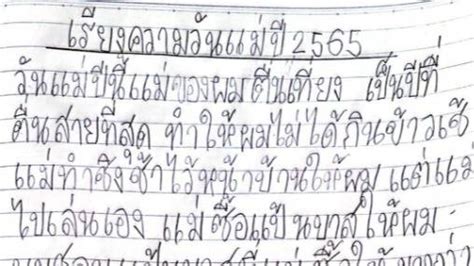 เรียงความวันแม่ปี 2565
วันแม่ปีนี้แม่ของผมตื่นเที่ยง เป็นปีที่
ตื่นสายที่สุด ทำให้ผมไม่ได้กินข้าวเช้
แม่ทำชิงช้าไว้หน้าบ้านให้ผม แต่แม่
ไปเล่นเอง แม่ซื้อแป้นบาสให้ผม